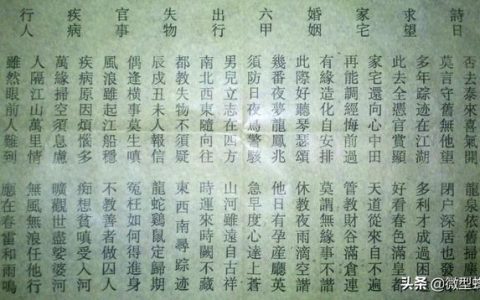 詩曰
否去泰來喜氣開 龍泉依舊掃
莫言守舊無他望 閉户深居也
求望
多年踪迹在江湖 多利才成過因
此去全憑官貴顯 好看春色滿皇
家宅
家宅還向心中田 天道從來自不遍
再能調經悔前過 管教財谷滿倉連
婚姻
有緣造化自安排 莫謂無緣事不諧
此際好聽琴瑟頌 休教夜雨滴空階
六甲
幾番夜夢龍鳳兆 他日有孕產麟英
須防日夜驚駭 急早度心達上蒼
出行
男兒立志在四方 山河雖遠自古祥
南北西東隨向往 時運來時關不藏
失物
都教失物不須疑 東西南尋踪迹
辰戌丑未人報信 龍蛇鷄鼠定歸期
官事
偶逢橫事莫生嗔 冤枉如何得進身
風浪雖起江船穩 不教善者做囚人
疾病
疾病原因煩惱多 痴想貧嗔受入河
萬緣掃空須息慮 曠觀世盡娑婆河
行人
人隔江山萬里情 無風無浪任他行
雖然眼前人難到 應在春雷和雨鳴
头条 @微型蜂